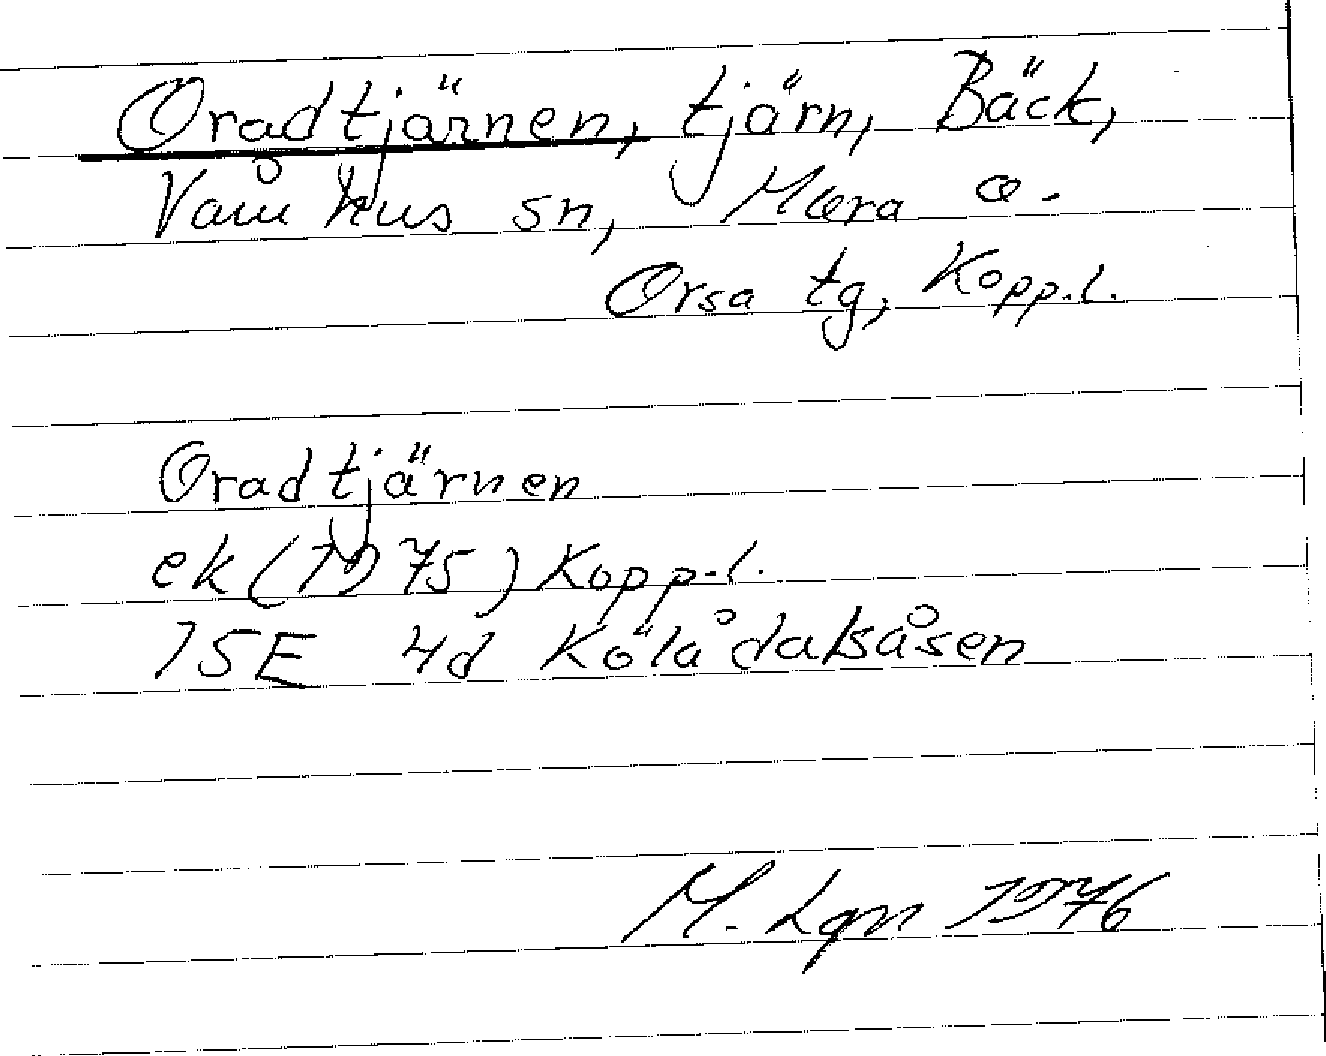 Oradtjärnen, tjärn, Bäck,
Våmhus sn, Mora o.
Orsa tg, Kopp.l.
Oradtjärnen
ek (1975) Kopp.l.
15E 4d Kölådalsåsen
M. Lgn 1976